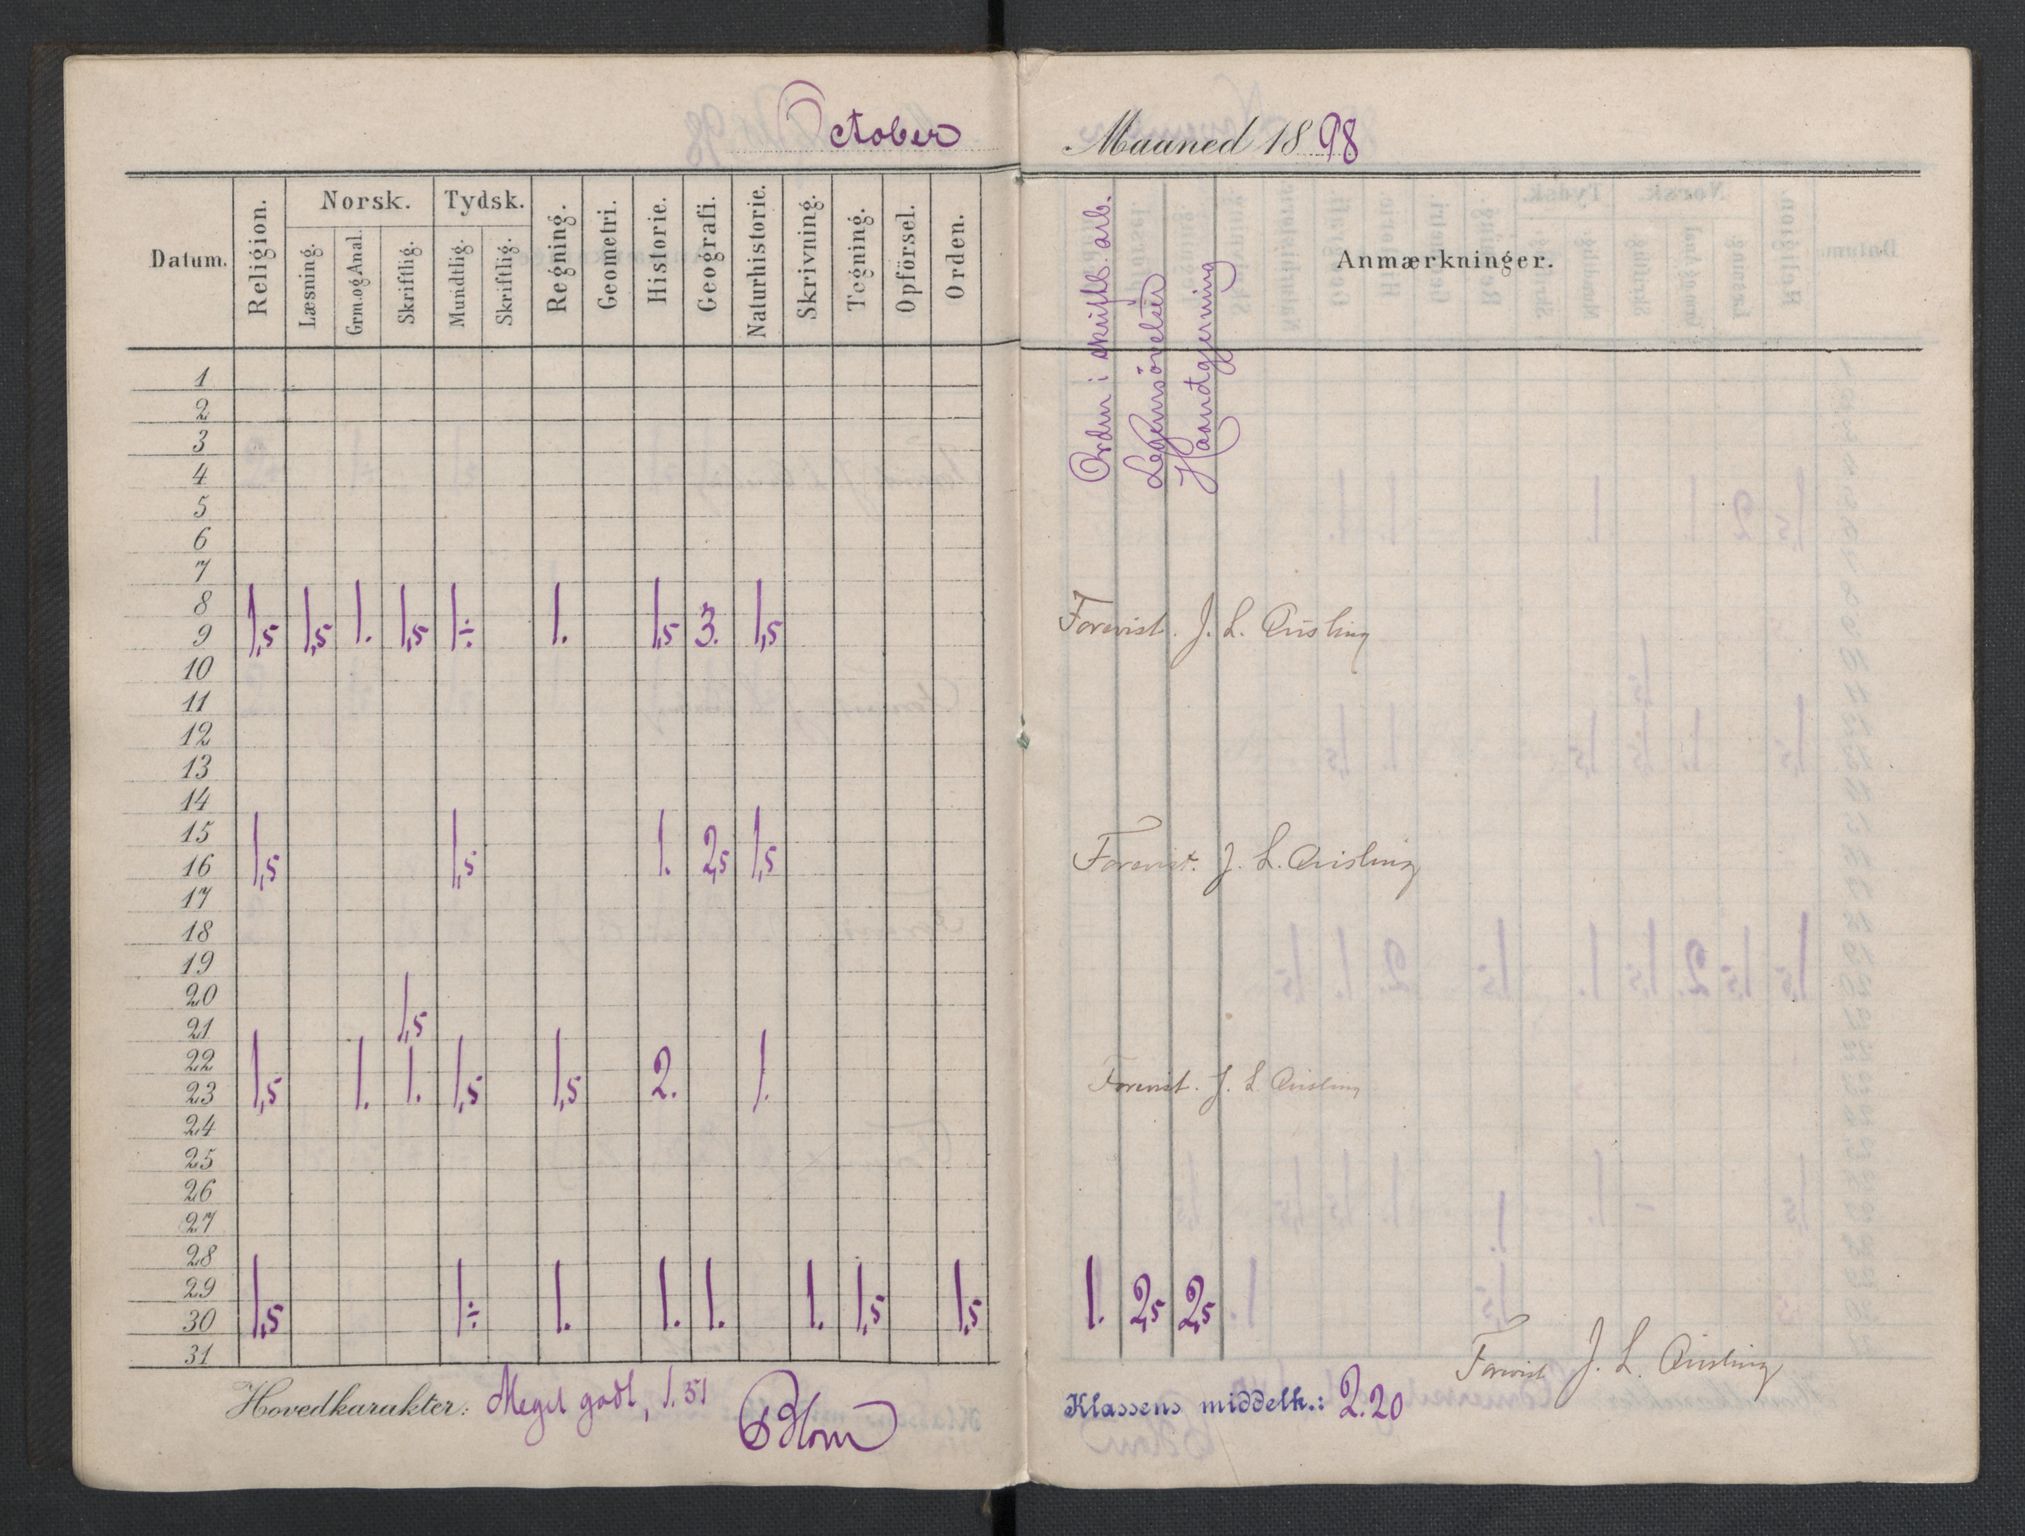 October Maaned 1898
Datum. Religion. Norsk. Tydsk. Regning. Geometri. Historie. Geografi. Naturhistorie. Skrivning. Tegning. Opförsel. Orden. Orden i skriftl. arb. Legemsövelser Haandgjerning Anmærkninger.
Læsning. Grm.og Anal. Skriftlig. Mundtlig. Skriftlig.
1
2
3
4
5
6
7
8
9 1,5 1,5 1. 1,5 1÷ 1. 1,5 3. 1,5 Forevist. J. L. Qvisling
10
11
12
13
14
15
16 1,5 1,5 1. 2,5 1,5 Forevist. J. L. Qvisling
17
18
19
20
21 1,5
22
23 1,5 1. 1. 1,5 1,5 2. 1. Forevist. J. L. Qvisling
24
25
26
27
28
29
30 1,5 1÷ 1. 1. 1. 1. 1,5 1,5 1. 2,5 2,5
31 Forevist J. L. Qvisling
Hovedkarakter: Meget godt, 1.51 Klassens middelk.: 2.20
Blom